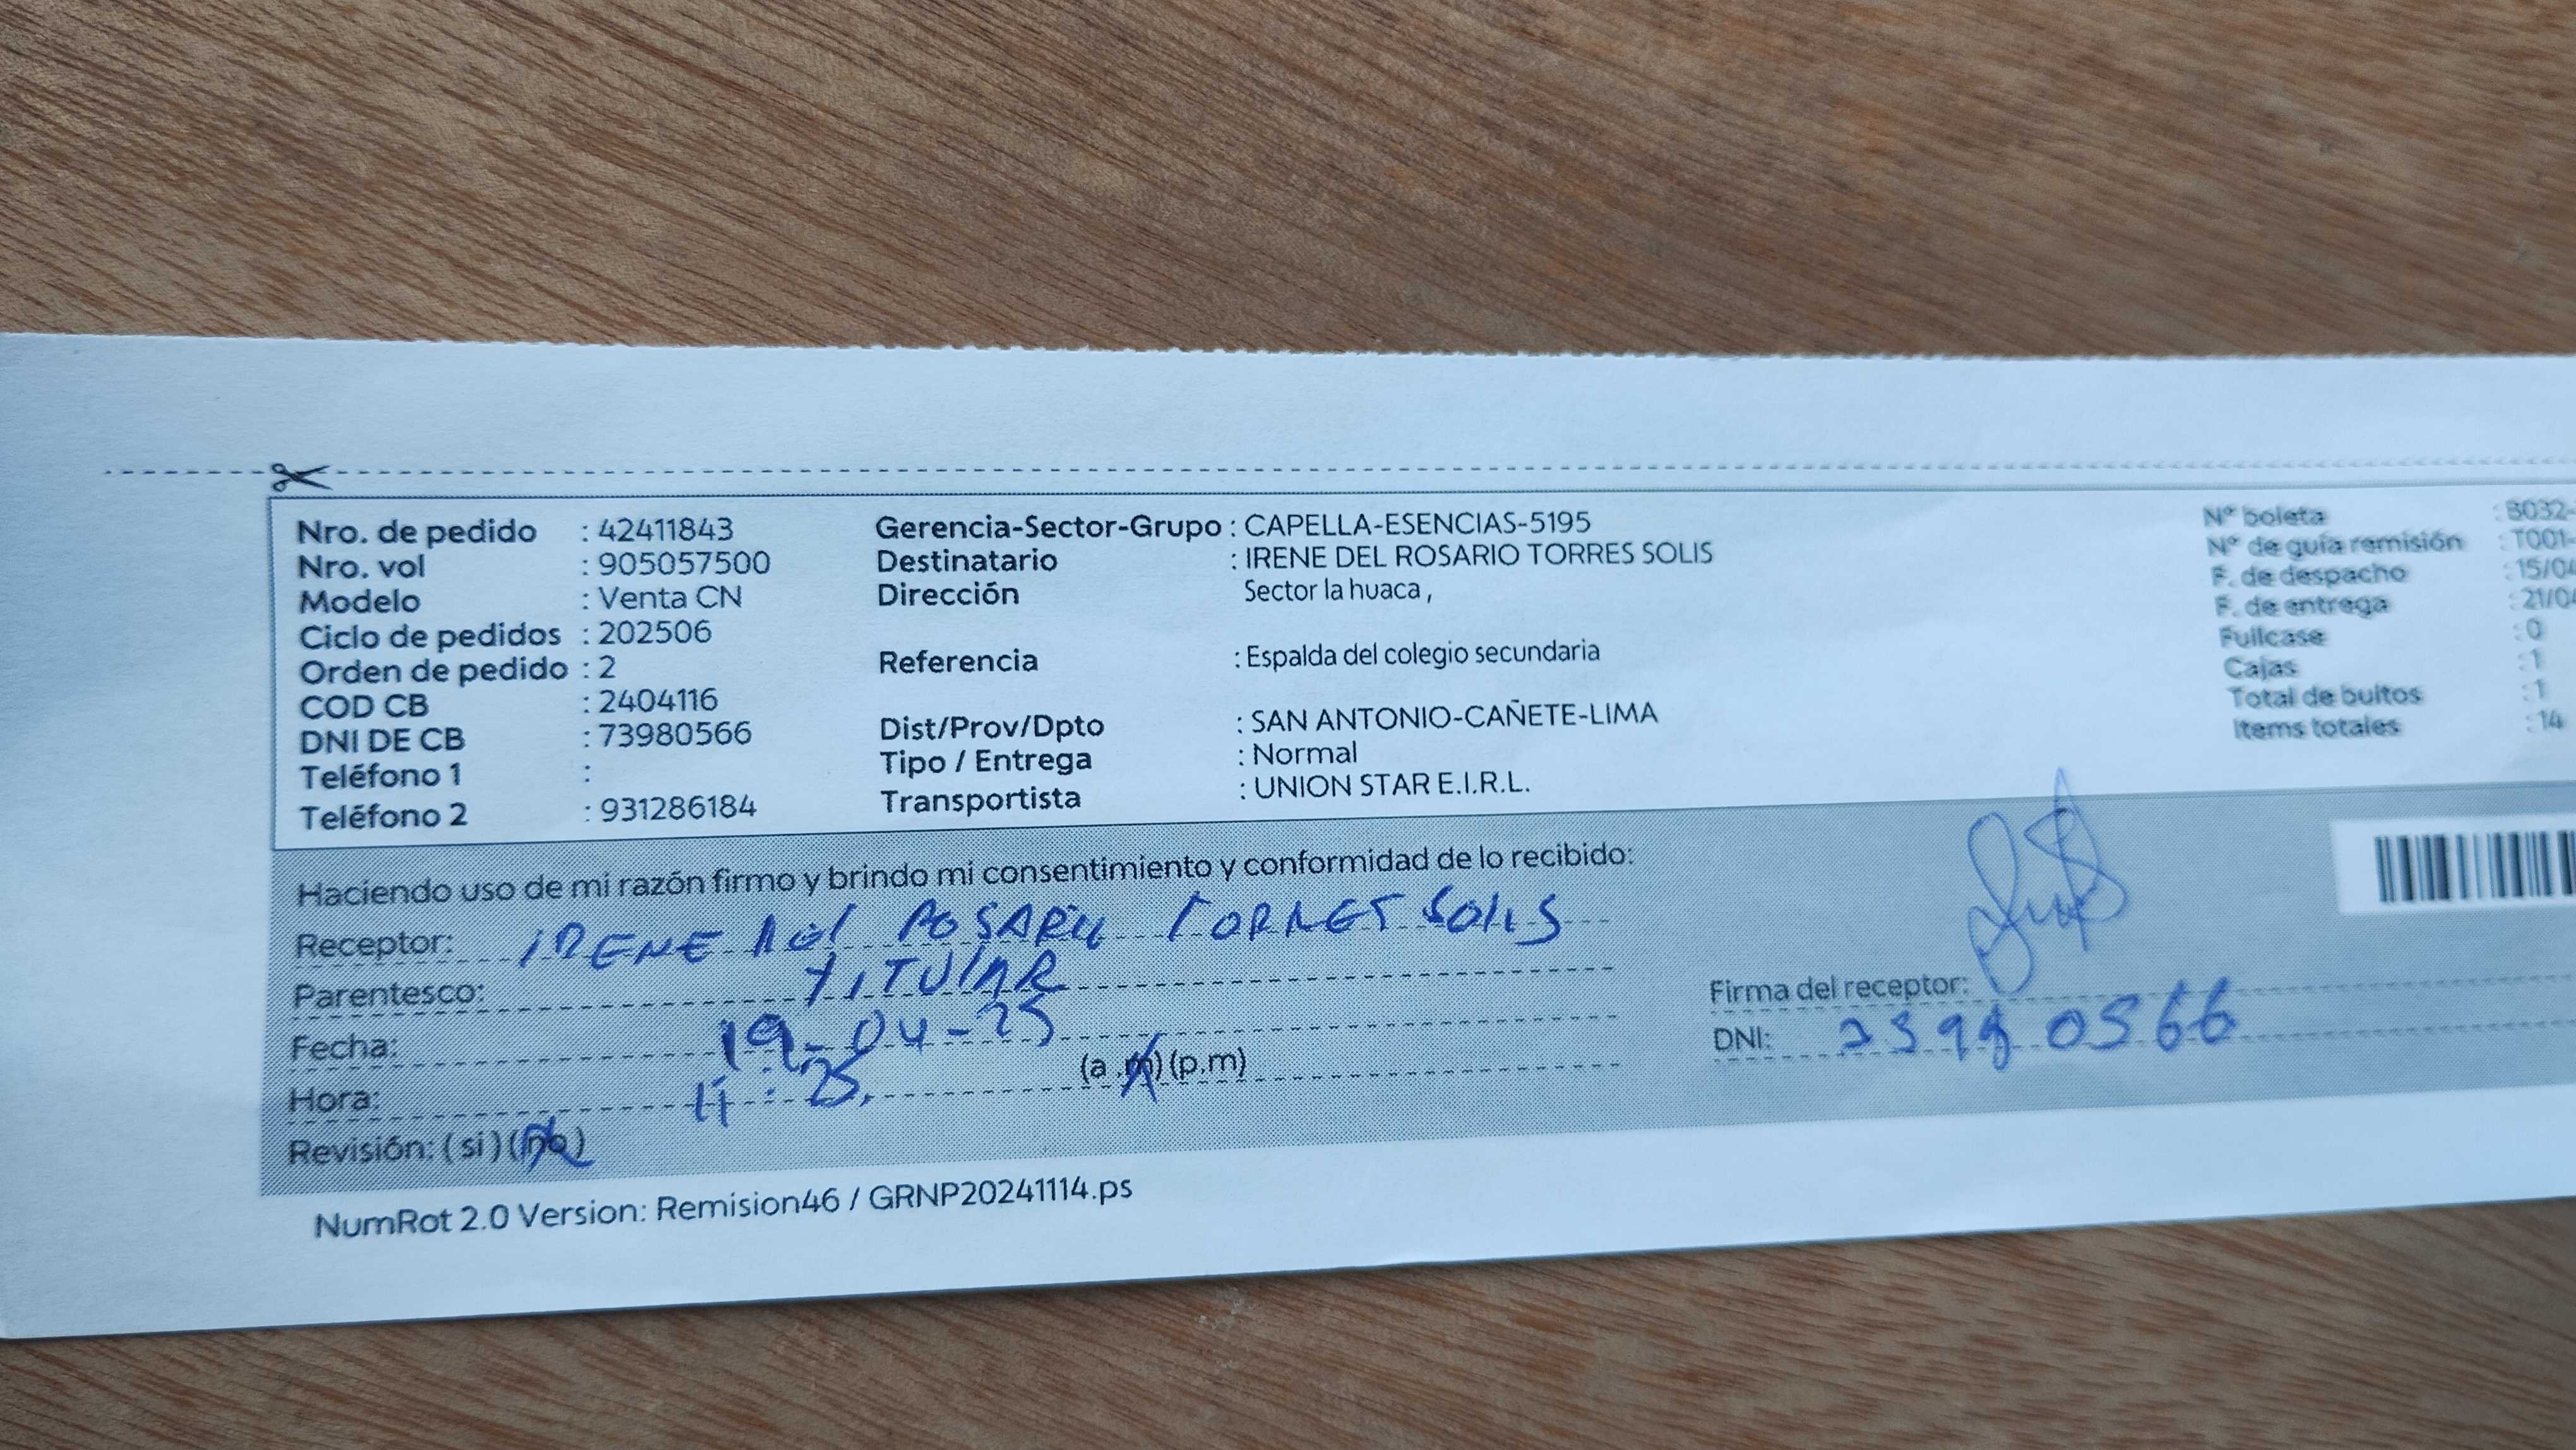 Nro. de pedido : 42411843
Nro. vol : 905057500
Modelo : Venta CN
Ciclo de pedidos : 202506
Orden de pedido : 2
COD CB : 2404116
DNI DE CB : 73980566
Teléfono 1 :
Teléfono 2 : 931286184
Gerencia-Sector-Grupo : CAPELLA-ESENCIAS-5195
Destinatario : IRENE DEL ROSARIO TORRES SOLIS
Dirección Sector la huaca ,
Referencia : Espalda del colegio secundaria
Dist/Prov/Dpto : SAN ANTONIO-CAÑETE-LIMA
Tipo / Entrega : Normal
Transportista : UNION STAR E.I.R.L.
N° boleta : B032-
N° de guía remisión : T001-
F. de despacho : 15/04
F. de entrega : 21/04
Fullcase : 0
Cajas : 1
Total de bultos : 1
Items totales : 14
Haciendo uso de mi razón firmo y brindo mi consentimiento y conformidad de lo recibido:
Receptor: IRENE SOLIS
Parentesco: TITULAR
Fecha: 19-04-25
Hora: 11:25 (a.m) (p.m)
Revisión: ( si ) (no)
Firma del receptor:
DNI: 0566
NumRot 2.0 Version: Remision46 / GRNP20241114.ps